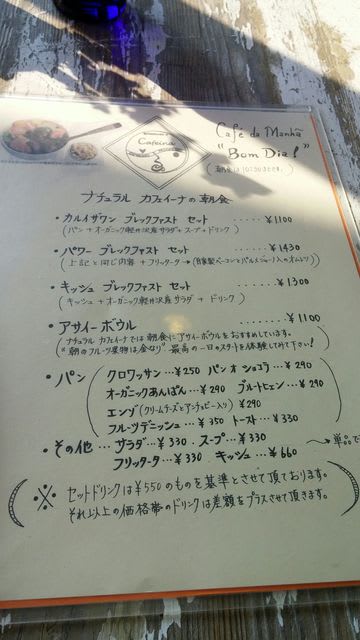 Cafeina
Café da Manhã
"Bom Dia!"
(朝食は10:30までです。)
ナチュラル カフェイーナの朝食
・カルイザワン ブレックファスト セット ‥‥‥ ¥1100
(パン+オーガニック軽井沢産サラダ+スープ+ドリンク)
・パワー ブレックファスト セット ‥‥‥ ¥1430
(上記と同じ内容 + フリッタータ→(自家製ベーコンとパルメジャーノ入のオムレツ))
・キッシュ ブレックファスト セット ‥‥‥ ¥1300
(キッシュ+オーガニック軽井沢産サラダ + ドリンク)
・アサイーボウル ‥‥‥ ¥1100
(ナチュラルカフェイーナでは朝食にアサイーボウルをおすすめしています。
"朝のフルーツ果物は金なり" 最高の一日のスタートを体験してみて下さい!)
・パン (クロワッサン…¥250 パン オ ショコラ…¥290
オーガニックあんぱん…¥290 ブルートヒェン…¥290
エンゾ(クリームチーズとアンチョビー入り) ¥290
フルーツデニッシュ…¥350 トースト…¥330)
・その他… サラダ…¥330. スープ…¥330. →単品で
フリッタータ…¥330 キッシュ…¥660
※ セットドリンクは¥550のものを基準とさせて頂ております。
それ以上の価格帯のドリンクは差額をプラスさせて頂きます。